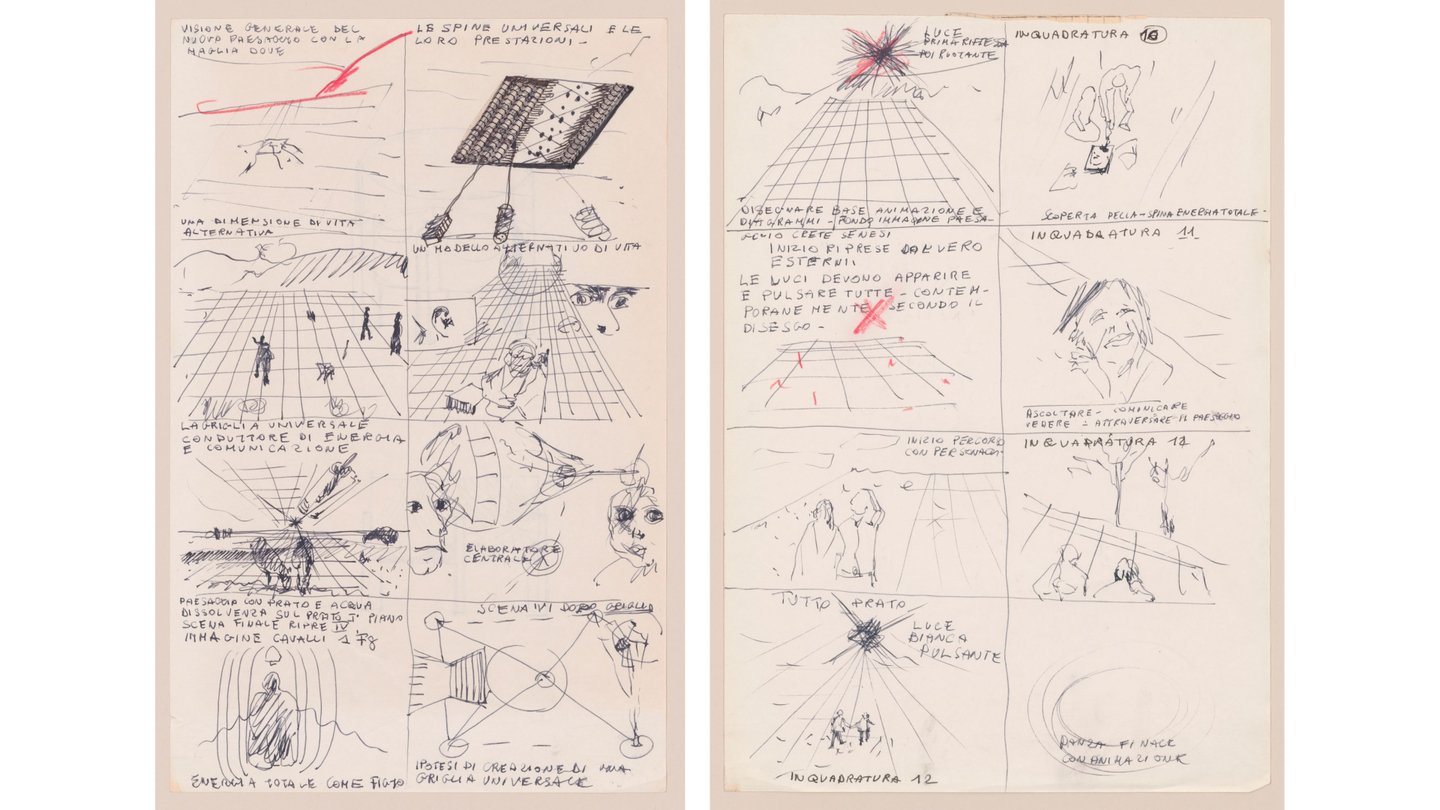 VISIONE GENERALE DEL
NUOVO PAESAGGIO CON LA
MAGLIA DOVE
LE SPINE UNIVERSALI E LE
LORO PRESTAZIONI -
UNA DIMENSIONE DI VITA
ALTERNATIVA
UN MODELLO ALTERNATIVO DI VITA
LA GRIGLIA UNIVERSALE
CONDUTTORE DI ENERGIA
E COMUNICAZIONE
ELABORATORE
CENTRALE
PAESAGGIO CON PRATO E ACQUA
DISSOLVENZA SUL PRATO I° PIANO
SCENA FINALE RIPRE IV
IMMAGINE CAVALLI
SCENA VI DOPO
ENERGIA TOTALE COME
IPOTESI DI CREAZIONE DI UNA
GRIGLIA UNIVERSALE
LUCE
PRIMA RIFLESSA
POI RUOTANTE
INQUADRATURA 10
DISEGNARE BASE ANIMAZIONE E
DIAGRAMMI - FONDO IMMAGINE PAESA-
GGIO CRETE SENESI
SCOPERTA DELLA - SPINA ENERGIA TOTALE -
INIZIO RIPRESE DAL VERO
ESTERNI
LE LUCI DEVONO APPARIRE
E PULSARE TUTTE - CONTEM-
PORANEMENTE SECONDO IL
DISEGNO -
INQUADRATURA 11
ASCOLTARE - COMUNICARE
VEDERE - ATTRAVERSARE IL PAESAGGIO
INIZIO PERCORSO
CON PERSONAGGI
INQUADRATURA 12
TUTTO PRATO
LUCE
BIANCA
PULSANTE
INQUADRATURA 12
DANZA FINALE
CON ANIMAZIONE